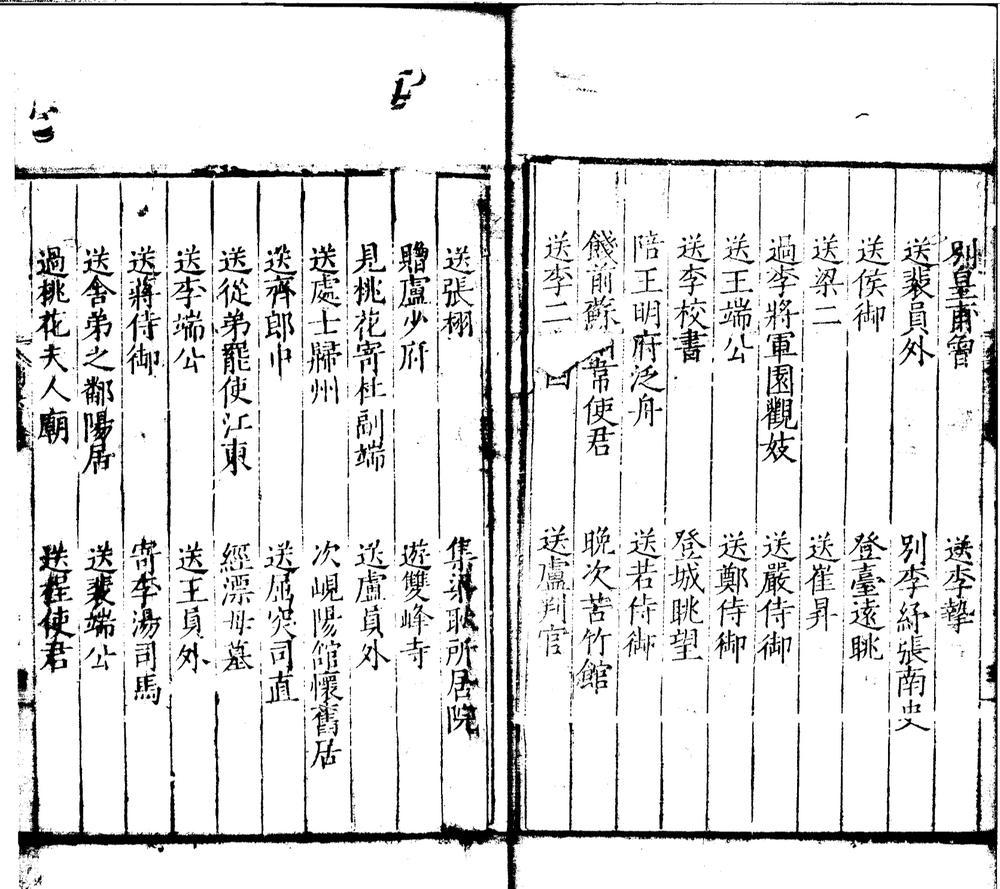 別皇甫曾
送李摯
送裴員外
別李紓張南史
送侯御
登臺遠眺
送梁二
送崔昇
過李將軍園觀妓
送嚴侍御
送王端公
送鄭侍御
送李校書
登城眺望
陪王明府泛舟
送若侍御
餞前蘇 韋使君
晚次苦竹館
送李二
送盧判官
送張栩
集梁耿所居院
贈盧少府
遊雙峰寺
見桃花寄杜副端
送盧員外
送處士歸州
次峴陽館懷舊居
送齊郎中
送屈突司直
送從弟罷使江東
經漂母墓
送李端公
送王員外
送蔣侍御
寄李湯司馬
送舍弟之鄱陽居
送裴端公
過桃花夫人廟
送程使君